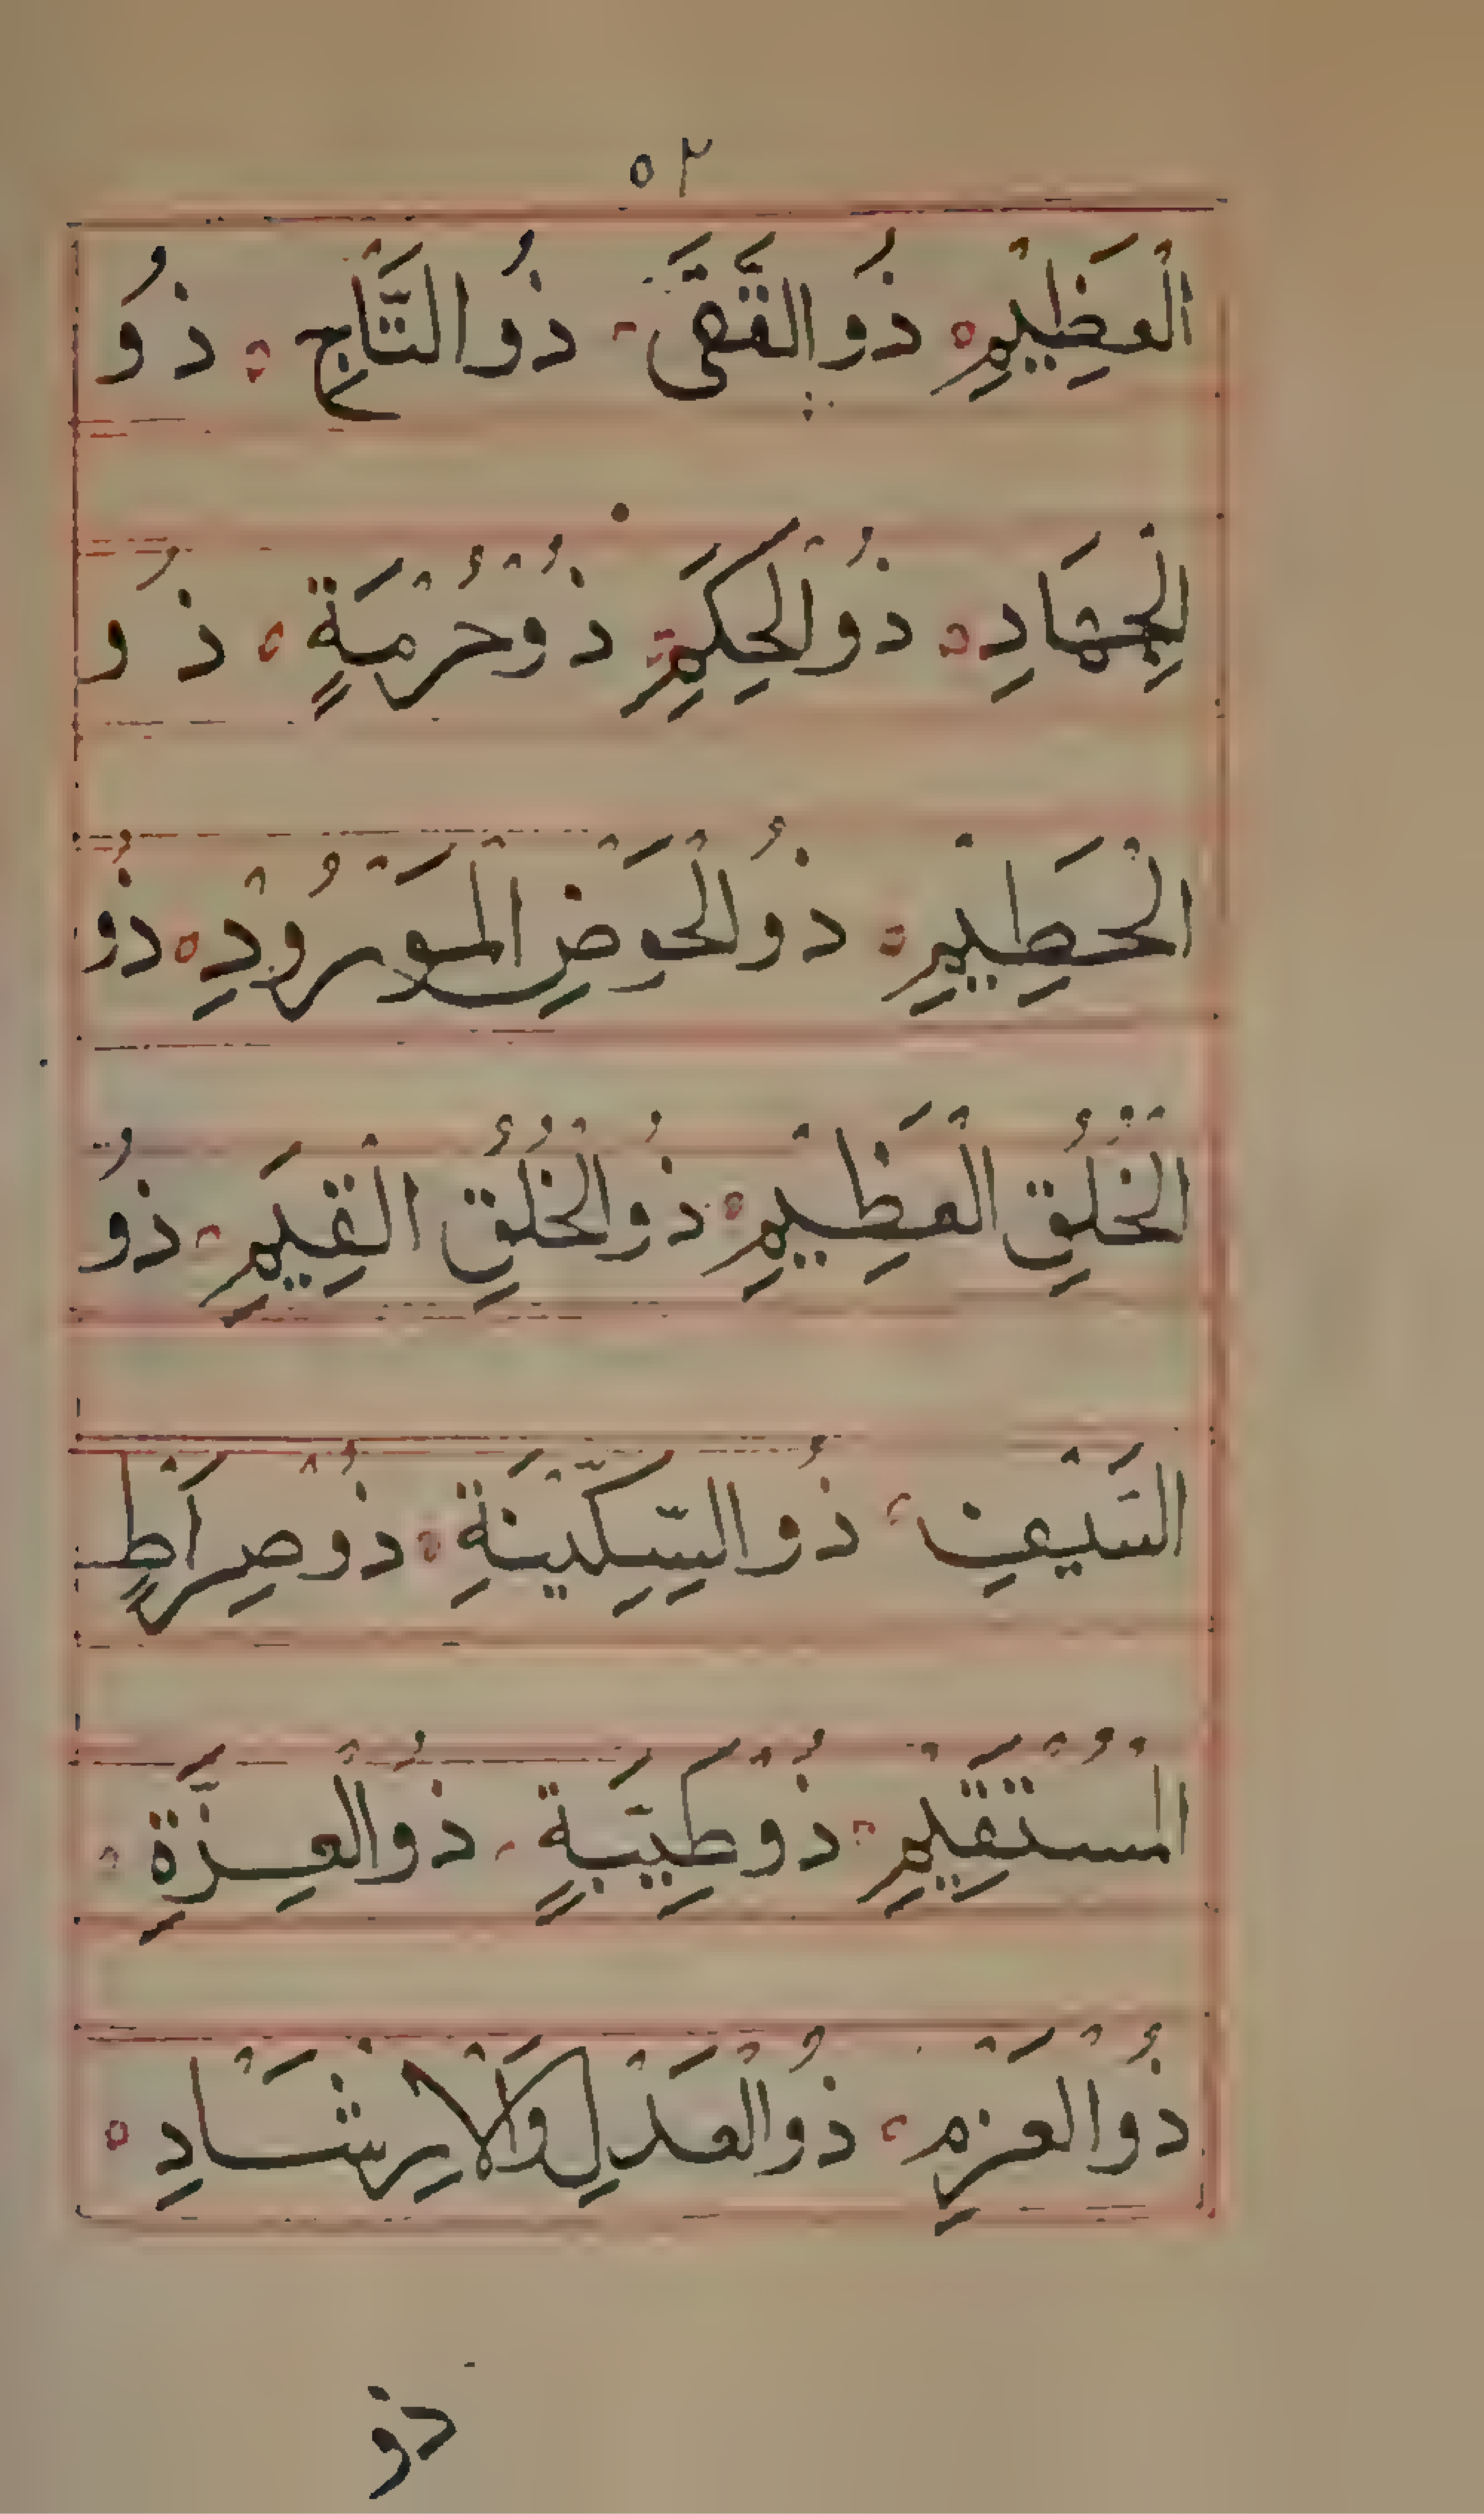 ٥٢
الْعَظِيْمِ ذُو التَّقَى ذُو التَّاجِ ذُو
الْجِهَادِ ذُو الْحِكَمِ ذُوْ حُرْمَةٍ ذُو
الْحَطِيْمِ ذُو الْحَوْضِ الْمَوْرُوْدِ ذُو
الْخُلُقِ الْعَظِيْمِ ذُو الْخُلُقِ الْقَيِّمِ ذُو
السَّيْفِ ذُو السَّكِيْنَةِ ذُوْ صِرَاطٍ
الْمُسْتَقِيْمِ ذُوْ طَيِّبَةٍ ذُو الْعِزَّةِ
ذُو الْعَزْمِ ذُو الْعَدْلِ وَالْاِرْشَادِ
ذو